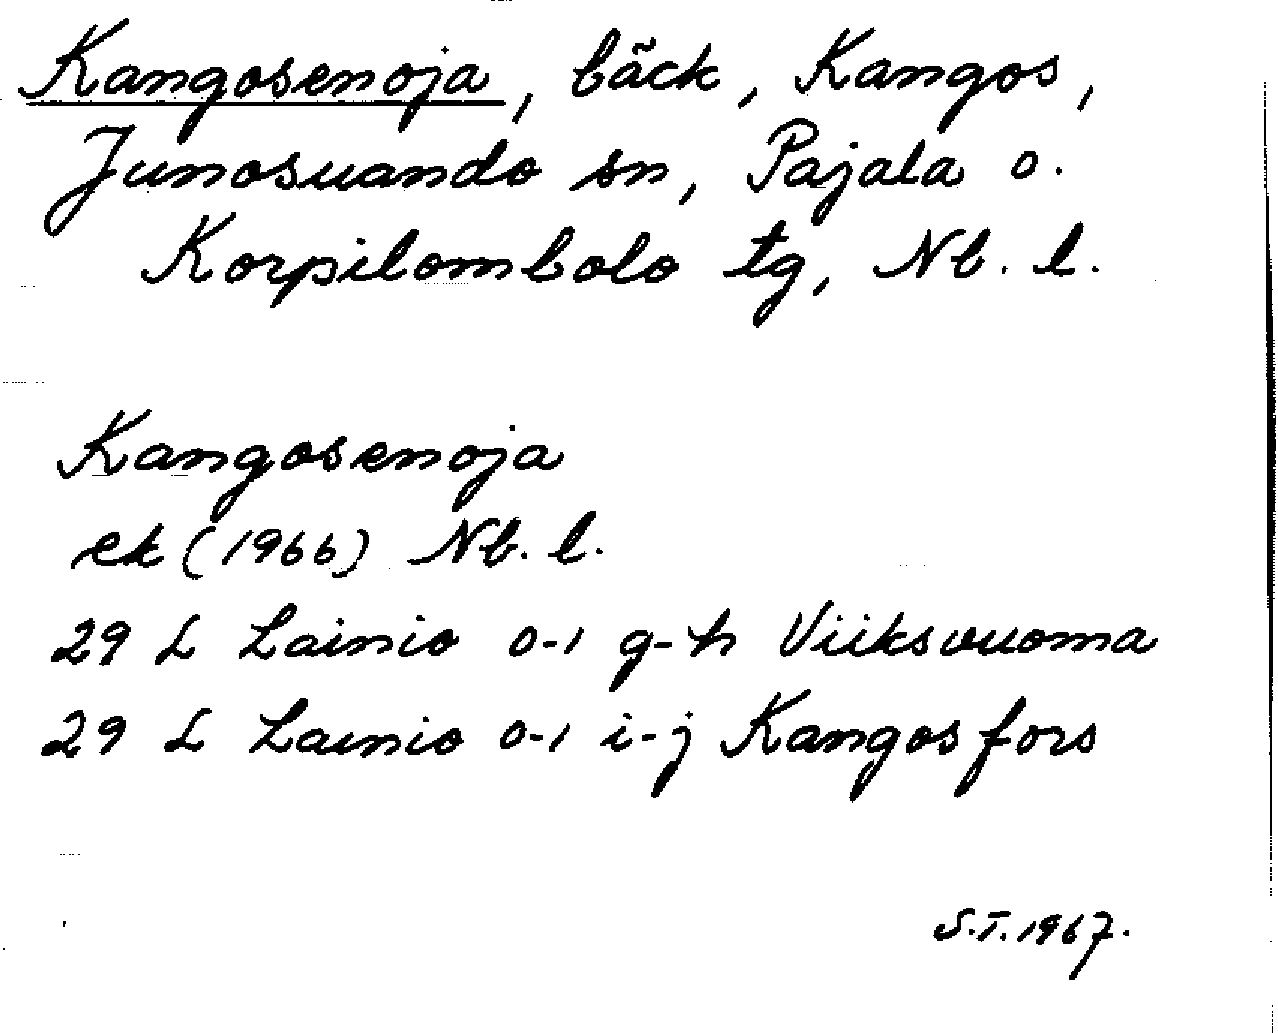 Kangosenoja, bäck, Kangos,
Junosuando sn, Pajala o.
Korpilombolo tg, Nb. l.
Kangosenoja
ek (1966) Nb. l.
29 L Lainio 0-1 g-h Viiksvuoma
29 L Lainio 0-1 i-j Kangosfors
S.T. 1967.